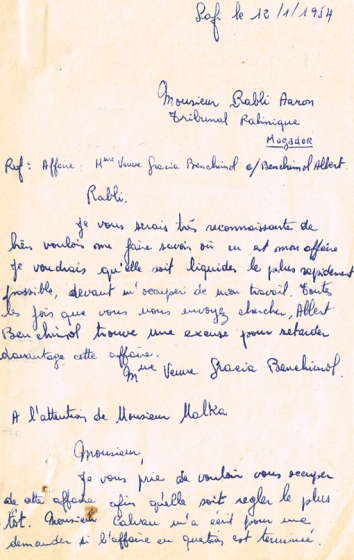 Safi le 12/1/1954
Monsieur Rabbi Aaron
Tribunal Rabinique
Mogador
Ref: Affaire Mme Veuve Gracia Benchimol c/ Benchimol Albert.
Rabbi,
Je vous serais très reconnaissante de
bien vouloir me faire savoir où en est mon affaire
Je voudrais qu'elle soit liquidée le plus rapidement
possible, devant m'occuper de mon travail. Toutes
les fois que vous nous envoyez chercher, Albert
Benchimol trouve une excuse pour retarder
davantage cette affaire.
Mme Veuve Gracia Benchimol.
A l'attention de Monsieur Malka
Monsieur,
Je vous prie de vouloir vous occuper
de cette affaire afin qu'elle soit regler le plus
tôt. Monsieur Calvau m'a écrit pour me
demander si l'affaire en question est terminée.